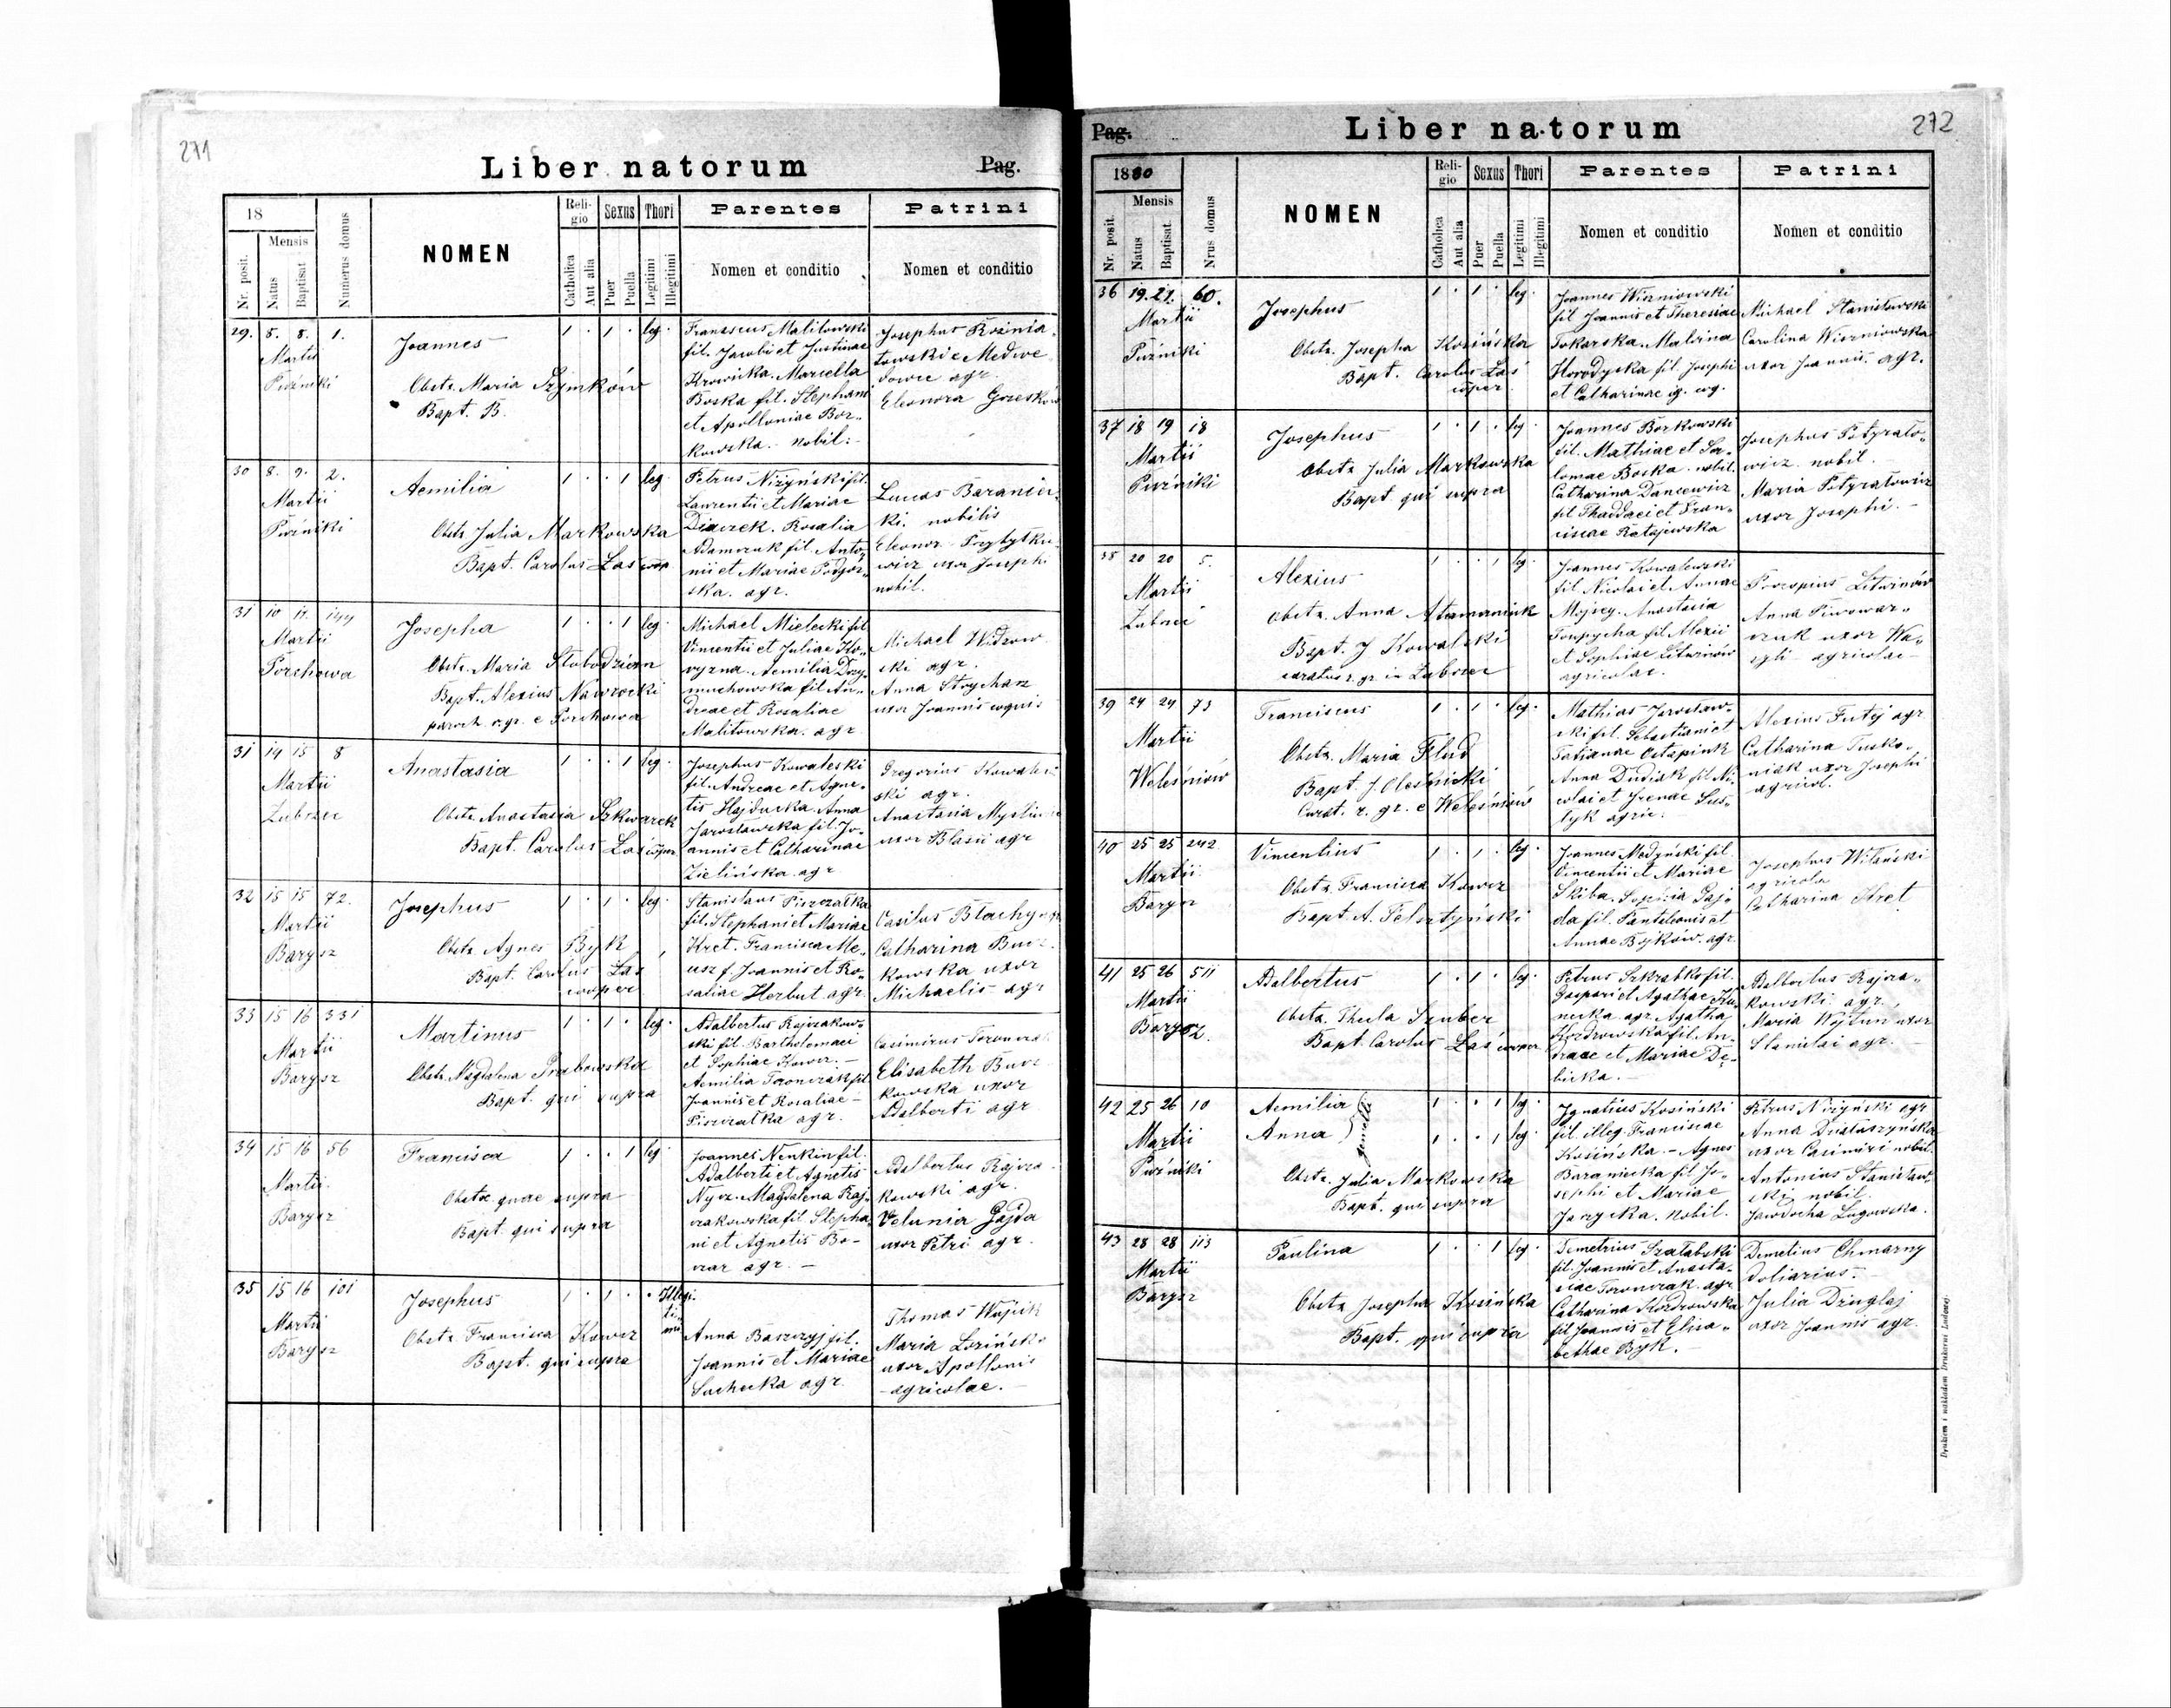 271
Liber natorum
Pag.
18
Nr. posit.
Mensis
Natus
Baptisat
Numerus domus
NOMEN
Religio
Catholica
Aut alia
Sexus
Puer
Puella
Thori
Legitimi
Illegitimi
Parentes
Nomen et conditio
Patrini
Nomen et conditio
29. 8. 8. 1.
Martii
Puźniki
Joannes
Obstr. Maria Szymków
Bapt. B.
1 . 1 . leg.
Franciscus Malitowski
fil. Jacobi et Justinae
Krowicka. Marcella
Boska fil. Stephani
et Apolloniae Bor-
kowska. nobil:
Josephus Koźnia-
towski e Medwe
dowce agr.
Eleonora Grzesków
30 8. 9. 2.
Martii
Puźniki
Aemilia
Obstr Julia Markowska
Bapt. Carolus Łaś coop
1 . . 1 leg
Petrus Niżyński fil.
Laurentii et Mariae
Diaczek. Rosalia
Adamczuk fil. Anto-
nii et Mariae Podgór-
ska. agr.
Lucas Baraniec
ki. nobilis
Eleonor Przybytke
wicz uxor Josephi
nobil.
31 10 11. 144
Martii
Porchowa
Josepha
Obstr. Maria Słobodzian
Bapt. Alexius Nawrocki
paroch. r. gr. e Porchowa
1 . . 1 leg.
Michael Mielecki fil
Vincentii et Juliae Ko-
ryzna. Aemilia Dzy-
muchowska fil An-
dreae et Rosaliae
Malitowska. agr
Michael Witzow
ski agr.
Anna Strychar
uxor Joannis cognis
31 14 15 8
Martii
Zubrzec
Anastasia
Obstr Anastasia Szkwarek
Bapt. Carolus Łaś cooper
1 . . 1 leg.
Josephus Kowaleski
fil. Andreae et Agne-
tis Hajducka. Anna
Jarosławska fil. Jo-
annis et Catharinae
Zielińska. agr
Gregorius Kowale
ski agr.
Anastasia Mysliw
uxor Blasii agr
32 15 15 72.
Martii
Barysz
Josephus
Obstr Agnes Byk
Bapt. Carolus Łaś
cooper
1 . 1 . leg.
Stanislaus Piszczatka
fil. Stephani et Mariae
Kret. Francisca Me-
usz f. Joannis et Ro-
saliae Herbut agr
Casilus Błachy
Catharina Bucz
kowska uxor
Michaelis agr
33 15 16 331
Martii
Barysz
Martinus
Obstr. Magdalena Grabowska
Bapt. qui supra
1 . 1 . leg.
Adalbertus Rajczakow-
ski fil. Bartholomaei
et Sophiae Kower. —
Aemilia Toronczak fil
Joannis et Rosaliae —
Piszczatka agr.
Casimirus Toroncza
Elisabeth Bucz
kowska uxor
Adalberti agr
34 15 16 56
Martii
Barysz
Francisca
Obstr quae supra
Bapt. qui supra
1 . . 1 leg
Joannes Nenkin fil.
Adalberti et Agnetis
Nycz. Magdalena Raj-
czakowska fil. Stepha-
ni et Agnetis Bo-
czar agr. —
Adalbertus Rajcza
kowski agr.
Velunia Gajda
uxor Petri agr.
35 15 16 101
Martii
Barysz
Josephus
Obstr. Francisca Kowcz
Bapt. qui supra
1 . 1 . . Illegi-
ti-
mi
Anna Baszczyj fil.
Joannis et Mariae
Suchecka agr.
Thomas Wojcik
Maria Łozińska
uxor Apollonis
agricolae. —
Pag.
Liber natorum
272
1880
Nr. posit.
Mensis
Natus
Baptisat.
Nrus domus
NOMEN
Religio
Catholica
Aut alia
Sexus
Puer
Puella
Thori
Legitimi
Illegitimi
Parentes
Nomen et conditio
Patrini
Nomen et conditio
36 19. 21. 60.
Martii
Puźniki
Josephus
Obstr. Josepha Kosińska
Bapt. Carolus Łaś
cooper
1 . 1 . leg.
Joannes Wiszniowski
fil Joannis et Theresiae
Tokarska. Malvina
Horodyska fil. Josephi
et Catharinae ig. cog.
Michael Stanisławski
Carolina Wiszniowska
uxor Joannis. agr.
37 18 19 18
Martii
Puźniki
Josephus
Obstr Julia Markowska
Bapt qui supra
1 . 1 . leg.
Joannes Borkowski
fil. Mathiae et Sa-
lomae Boska. nobil.
Catharina Dancewicz
fil Thaddaei et Fran-
ciscae Ratajewska
Josephus Potyrało-
wicz nobil. —
Maria Potyrałowicz
uxor Josephi. —
38 20 20 5.
Martii
Zubrzec
Alexius
Obstr. Anna Atamaniuk
Bapt. J Kowalski
curatus r. gr. in Zubrzec
1 . . 1 leg.
Joannes Kowalewski
fil. Nicolai et Annae
Mojsey. Anastasia
Toupycha fil Alexii
et Sophiae Litwinów
agricolae.
Procopius Litwinów
Anna Piwowar-
czuk uxor Wa-
syli agricolae —
39 24 24 73
Martii
Weleśniów
Franciscus
Obstr. Maria Flud
Bapt. J. Olesnicki
Curat. r. gr. e Weleśniów
1 . 1 . leg.
Mathias Jarosław-
ski fil. Sebastiani et
Tatianae Ostapiuk
Anna Dudiak fil. Ni-
colai et Irenae Sus-
tyk agric.
Alexius Futej agr
Catharina Tusko-
niak uxor Josephi
agricol.
40 25 25 242
Martii
Barysz
Vincentius
Obstr. Francisca Kowcz
Bapt. A. Felsztyński
1 . 1 . leg.
Joannes Medyński fil.
Vincentii et Mariae
Skiba. Sophia Gaj-
da fil. Panteleonis et
Annae Bojków. agr.
Josephus Wilański
agricola
Catharina Kret
41 25 26 511
Martii
Barysz.
Adalbertus
Obstr. Thecla Szuber
Bapt. Carolus Łaś cooper
1 . 1 . leg.
Petrus Szkrabko fil.
Gaspari et Agathae Ku-
necka agr. Agatha
Kozdrowska fil. An-
dreae et Mariae De-
bicka. —
Adalbertus Rajcza-
kowski agr.
Maria Wojtun uxor
Stanislai agr. —
42 25 26 10
Martii
Puźniki
Aemilia
Anna
gemellae
Obstr. Julia Markowska
Bapt. qui supra
1 . . 1 leg
1 . . 1 leg.
Ignatius Kosiński
fil. illeg. Franciscae
Kosińska. — Agnes
Baraniecka fil. Jo-
sephi et Mariae
Janycka. Nobil.
Petrus Niżyński agr
Anna Działaszyńska
uxor Casimiri nobil.
Antonius Stanisław-
ski nobil.
Jawdocha Ługowska.
43 28 28 113
Martii
Barysz
Paulina
Obstr Josepha Kosińska
Bapt. qui supra
1 . . 1 leg.
Demetrius Szałabski
fil. Joannis et Anasta-
siae Toronczak. agr
Catharina Kozdrowska
fil Joannis et Elisa-
bethae Byk. —
Demetius Chmarny
doliarius. —
Julia Dzuglaj
uxor Joannis agr.
Drukiem i nakładem Drukarni Ludowej.